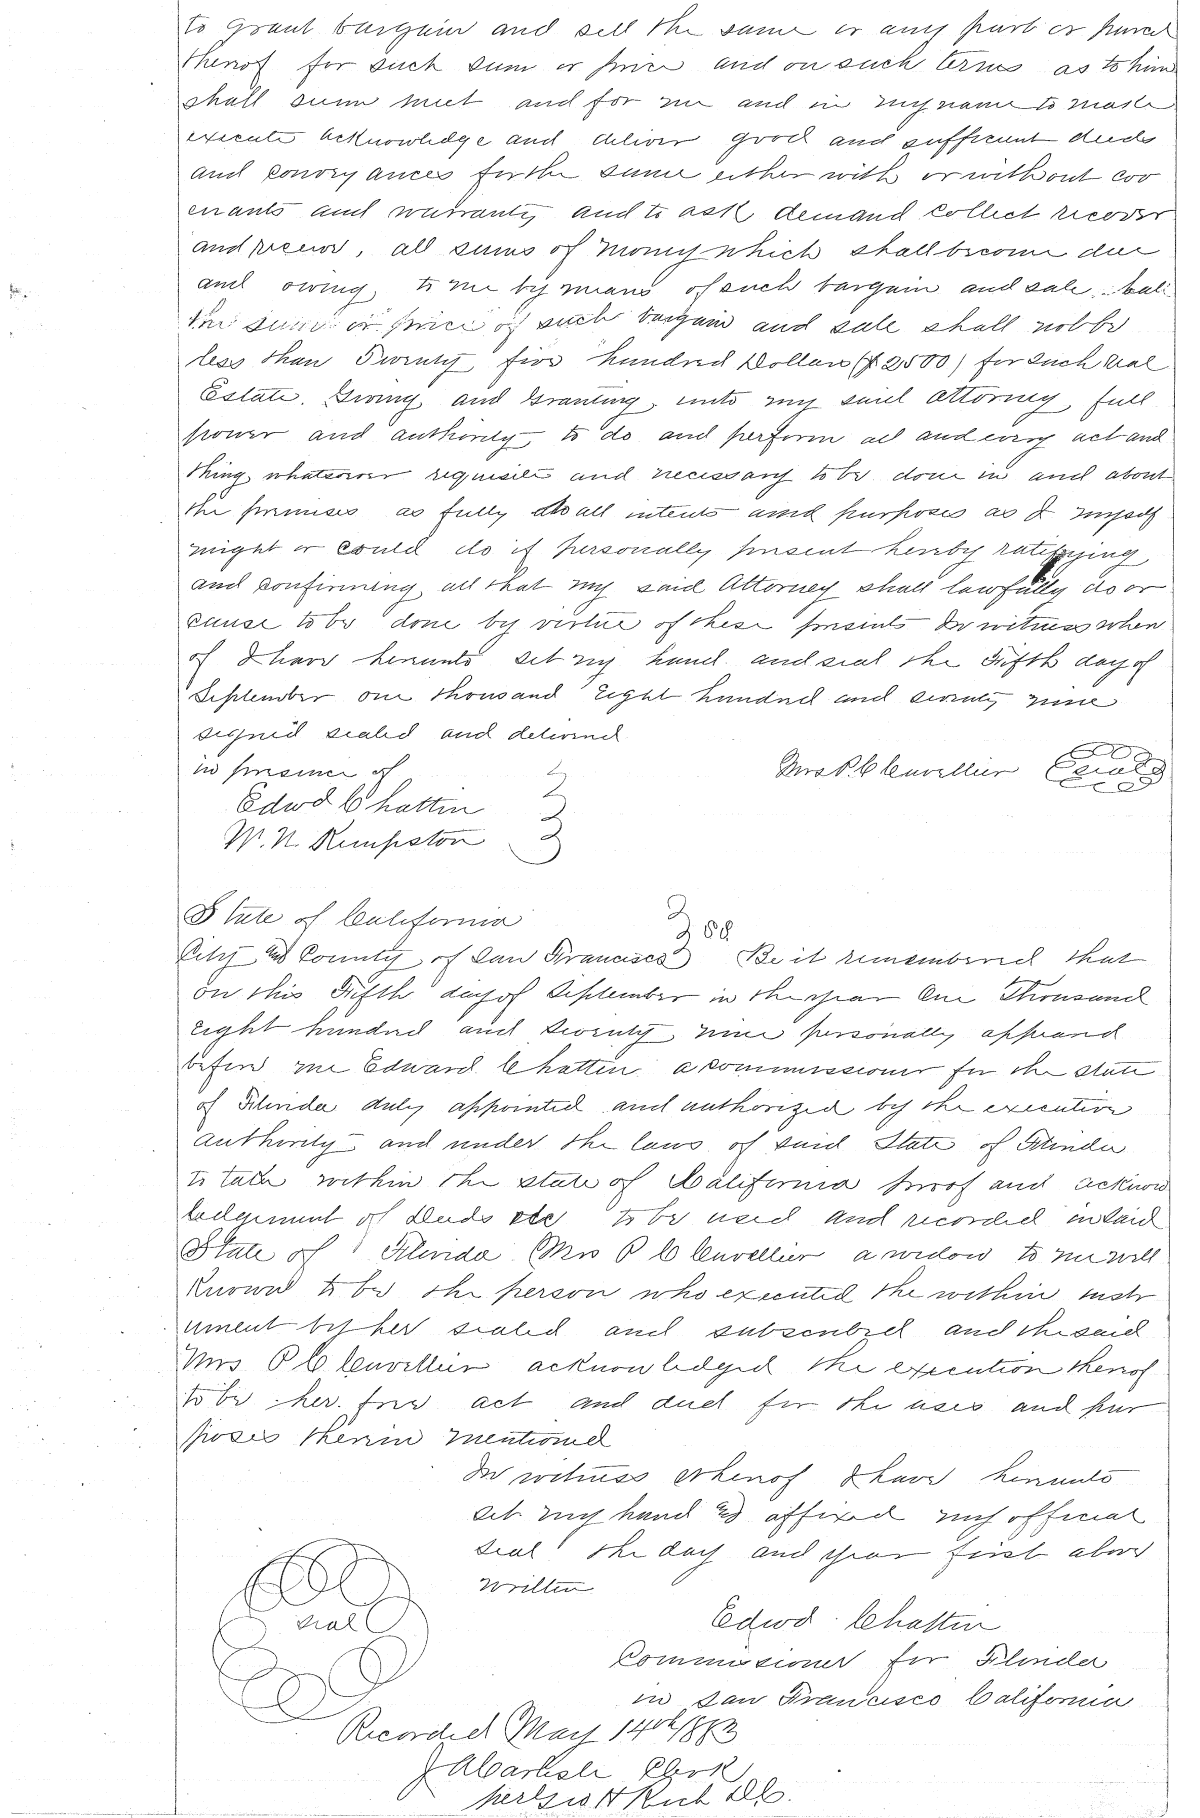 to grant bargain and sell the same or any part or parcel
thereof for such sum or price and on such terms as to him
shall seem meet and for me and in my name to make
execute acknowledge and deliver good and sufficient deeds
and conveyances for the same either with or without cov
enants and warranty and to ask demand collect recover
and receive, all sums of money which shall become due
and owing to me by means of such bargain and sale
the sum or price of such bargain and sale shall not be
less than Twenty five hundred Dollars ($2500) for such real
Estate. Giving and Granting unto my said attorney full
power and authority to do and perform all and every act and
thing whatsoever requisite and necessary to be done in and about
the premises as fully to all intents and purposes as I myself
might or could do if personally present hereby ratifying
and confirming all that my said Attorney shall lawfully do or
cause to be done by virtue of these presents In witness where
of I have hereunto set my hand and seal the Fifth day of
September one thousand Eight hundred and seventy nine
signed sealed and delivered
in presence of
Mrs P. C Cuvellier Seal
Edwd Chattin
W. N. Kempston
State of California
City and County of San Francisco SS Be it remembered that
on this Fifth day of September in the year One Thousand
eight hundred and seventy nine personally appeared
before me Edward Chattin a commissioner for the state
of Florida duly appointed and authorized by the executive
authority and under the laws of said State of Florida
to take within the state of California proof and acknow
ledgement of Deeds etc to be used and recorded in said
State of Florida Mrs P C Cuvellier a widow to me well
Known to be the person who executed the within instr
ument by her sealed and subscribed and the said
Mrs P C Cuvellier acknowledged the execution thereof
to be her free act and deed for the uses and pur
poses therein mentioned
In witness whereof I have hereunto
set my hand and affixed my official
seal the day and year first above
written
seal
Edwd Chattin
Commissioner for Florida
in San Francisco California
Recorded May 14th 1883
J A Carlisle Clerk
per Geo H Rich D.C.